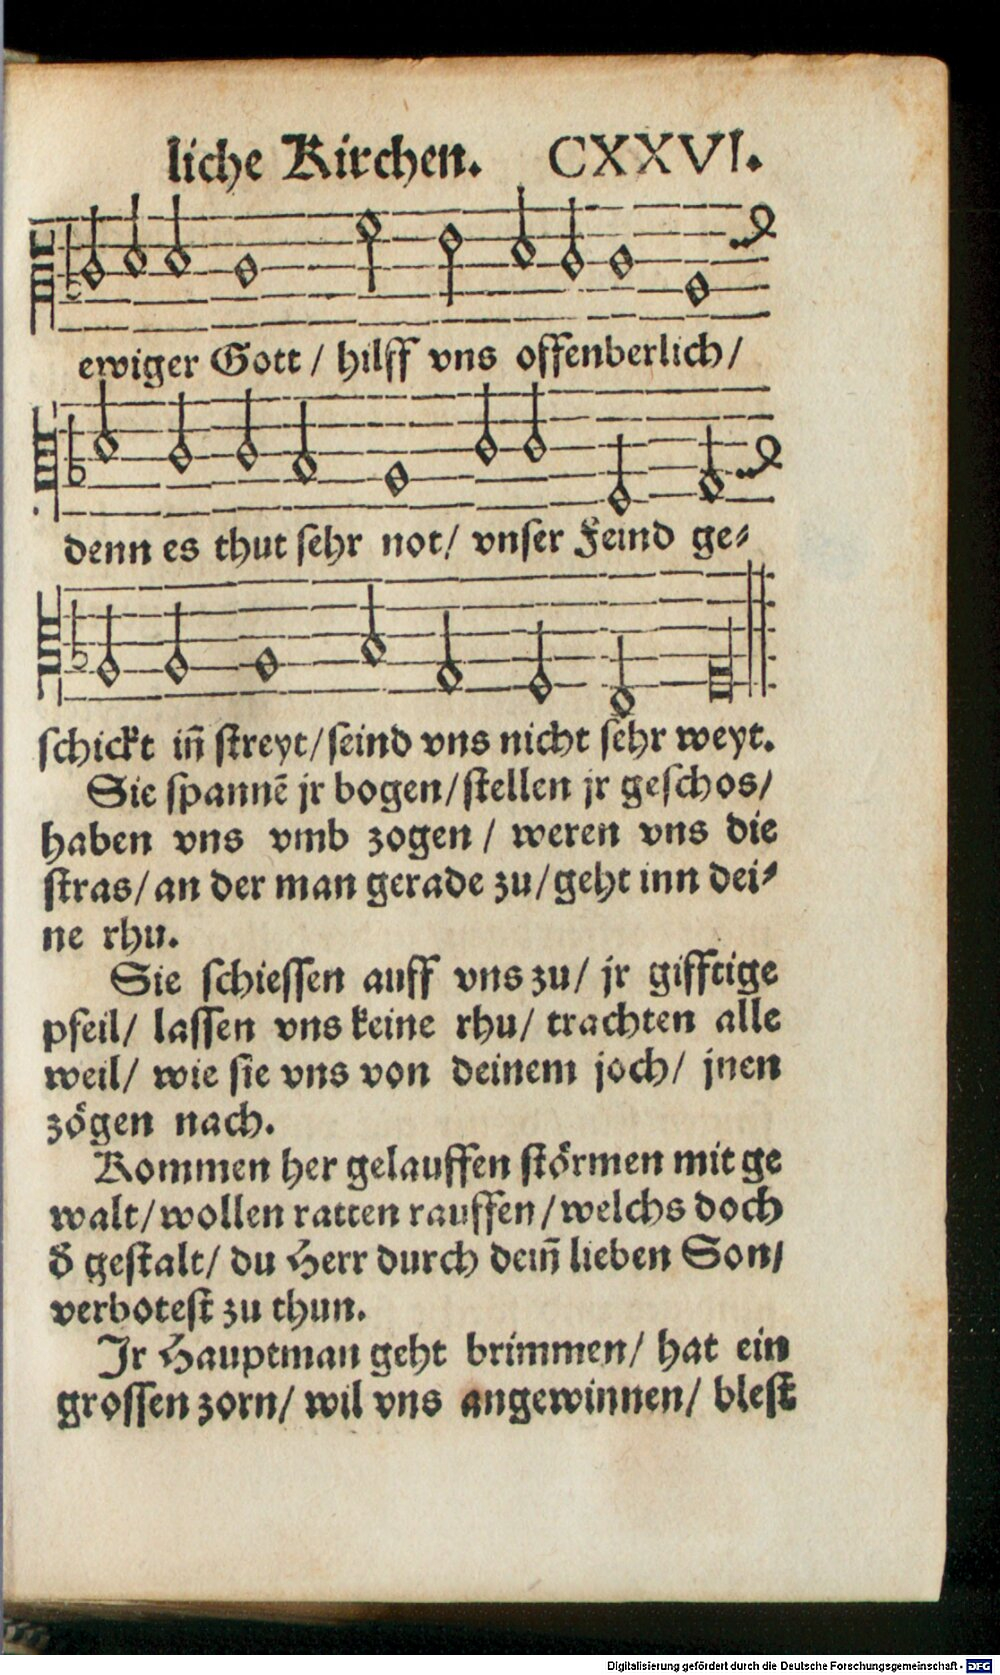 liche Kirchen. CXXVI.
ewiger Gott / hilff vns offenberlich /
denn es thut sehr not / vnser Feind ge⸗
schickt iñ streyt / seind vns nicht sehr weyt.
Sie spannẽ jr bogen / stellen jr geschos /
haben vns vmb zogen / weren vns die
stras / an der man gerade zu / geht inn dei⸗
ne rhu.
Sie schiessen auff vns zu / jr gifftige
pfeil / lassen vns keine rhu / trachten alle
weil / wie sie vns von deinem joch / jnen
zögen nach.
Kommen her gelauffen störmen mit ge
walt / wollen ratten rauffen / welchs doch
d̕ gestalt / du Herr durch deiñ lieben Son /
verbotest zu thun.
Jr Hauptman geht brimmen / hat ein
grossen zorn / wil vns angewinnen / blest
Digitalisierung gefördert durch die Deutsche Forschungsgemeinschaft - DFG